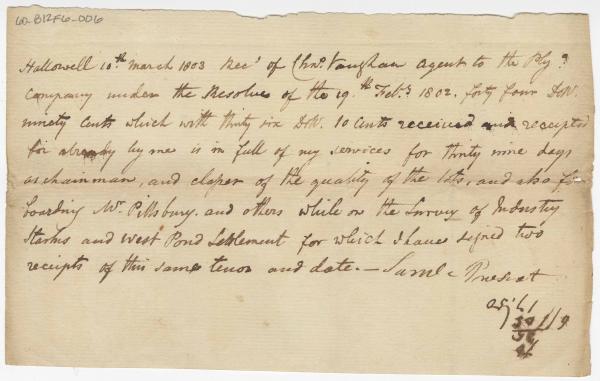 60-B12F6-006
Hallowell 10th March 1803 Rec'd of Chas. Vaughan agent to the Ply.o
Company under the Resolve of the 19th Feb.y 1802. forty four Doll.
ninety Cents which with thirty six Doll. 10 Cents received and receipted
for already by me is in full of my services for thirty nine days
as chainman, and clasper of the quality of the lots, and also for
boarding Mr. Pillsbury and others while on the Survey of Industry
Starks and West Pond Settlement for which I have signed two
receipts of this same tenor and date. — Saml